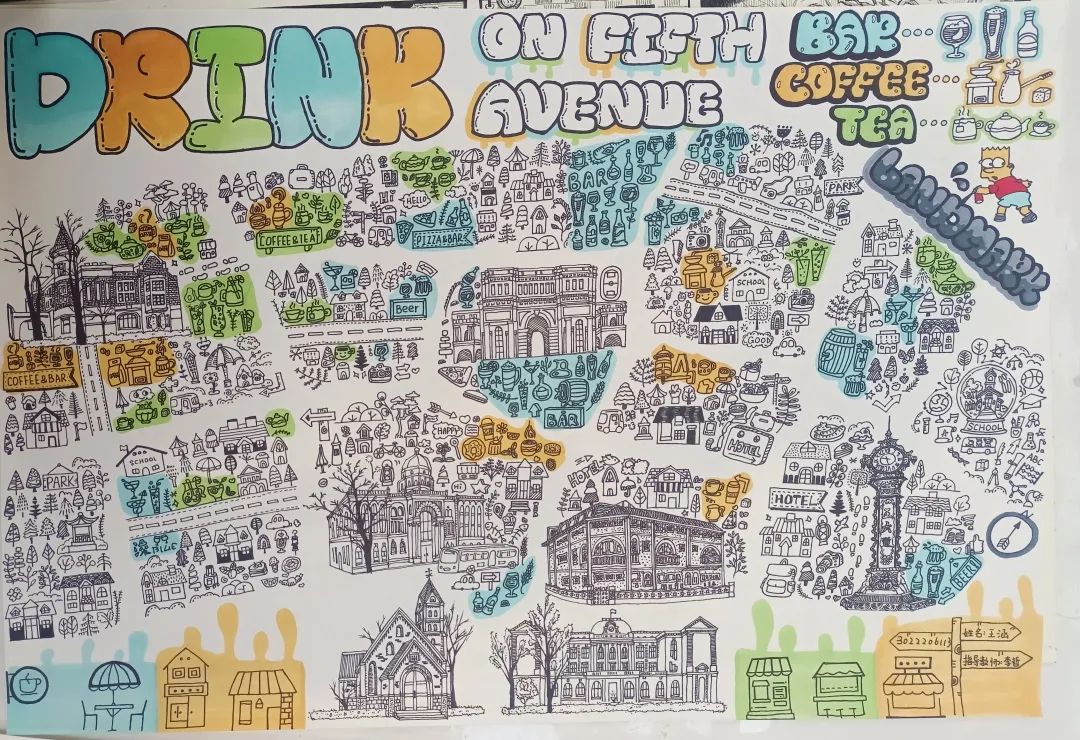 DRINK
ON FIFTH
AVENUE
BAR
COFFEE
TEA
LANDMARK
HELLO
PARK
BAR
COFFEE&TEA
PIZZA&BAR
SCHOOL
Beer
GOOD
COFFEE&BAR
BAR
SCHOOL
HAPPY
HOTEL
SCHOOL
PARK
HOTEL
HOTEL
BEER
3022206113
姓名:王涵
指导教师:李哲